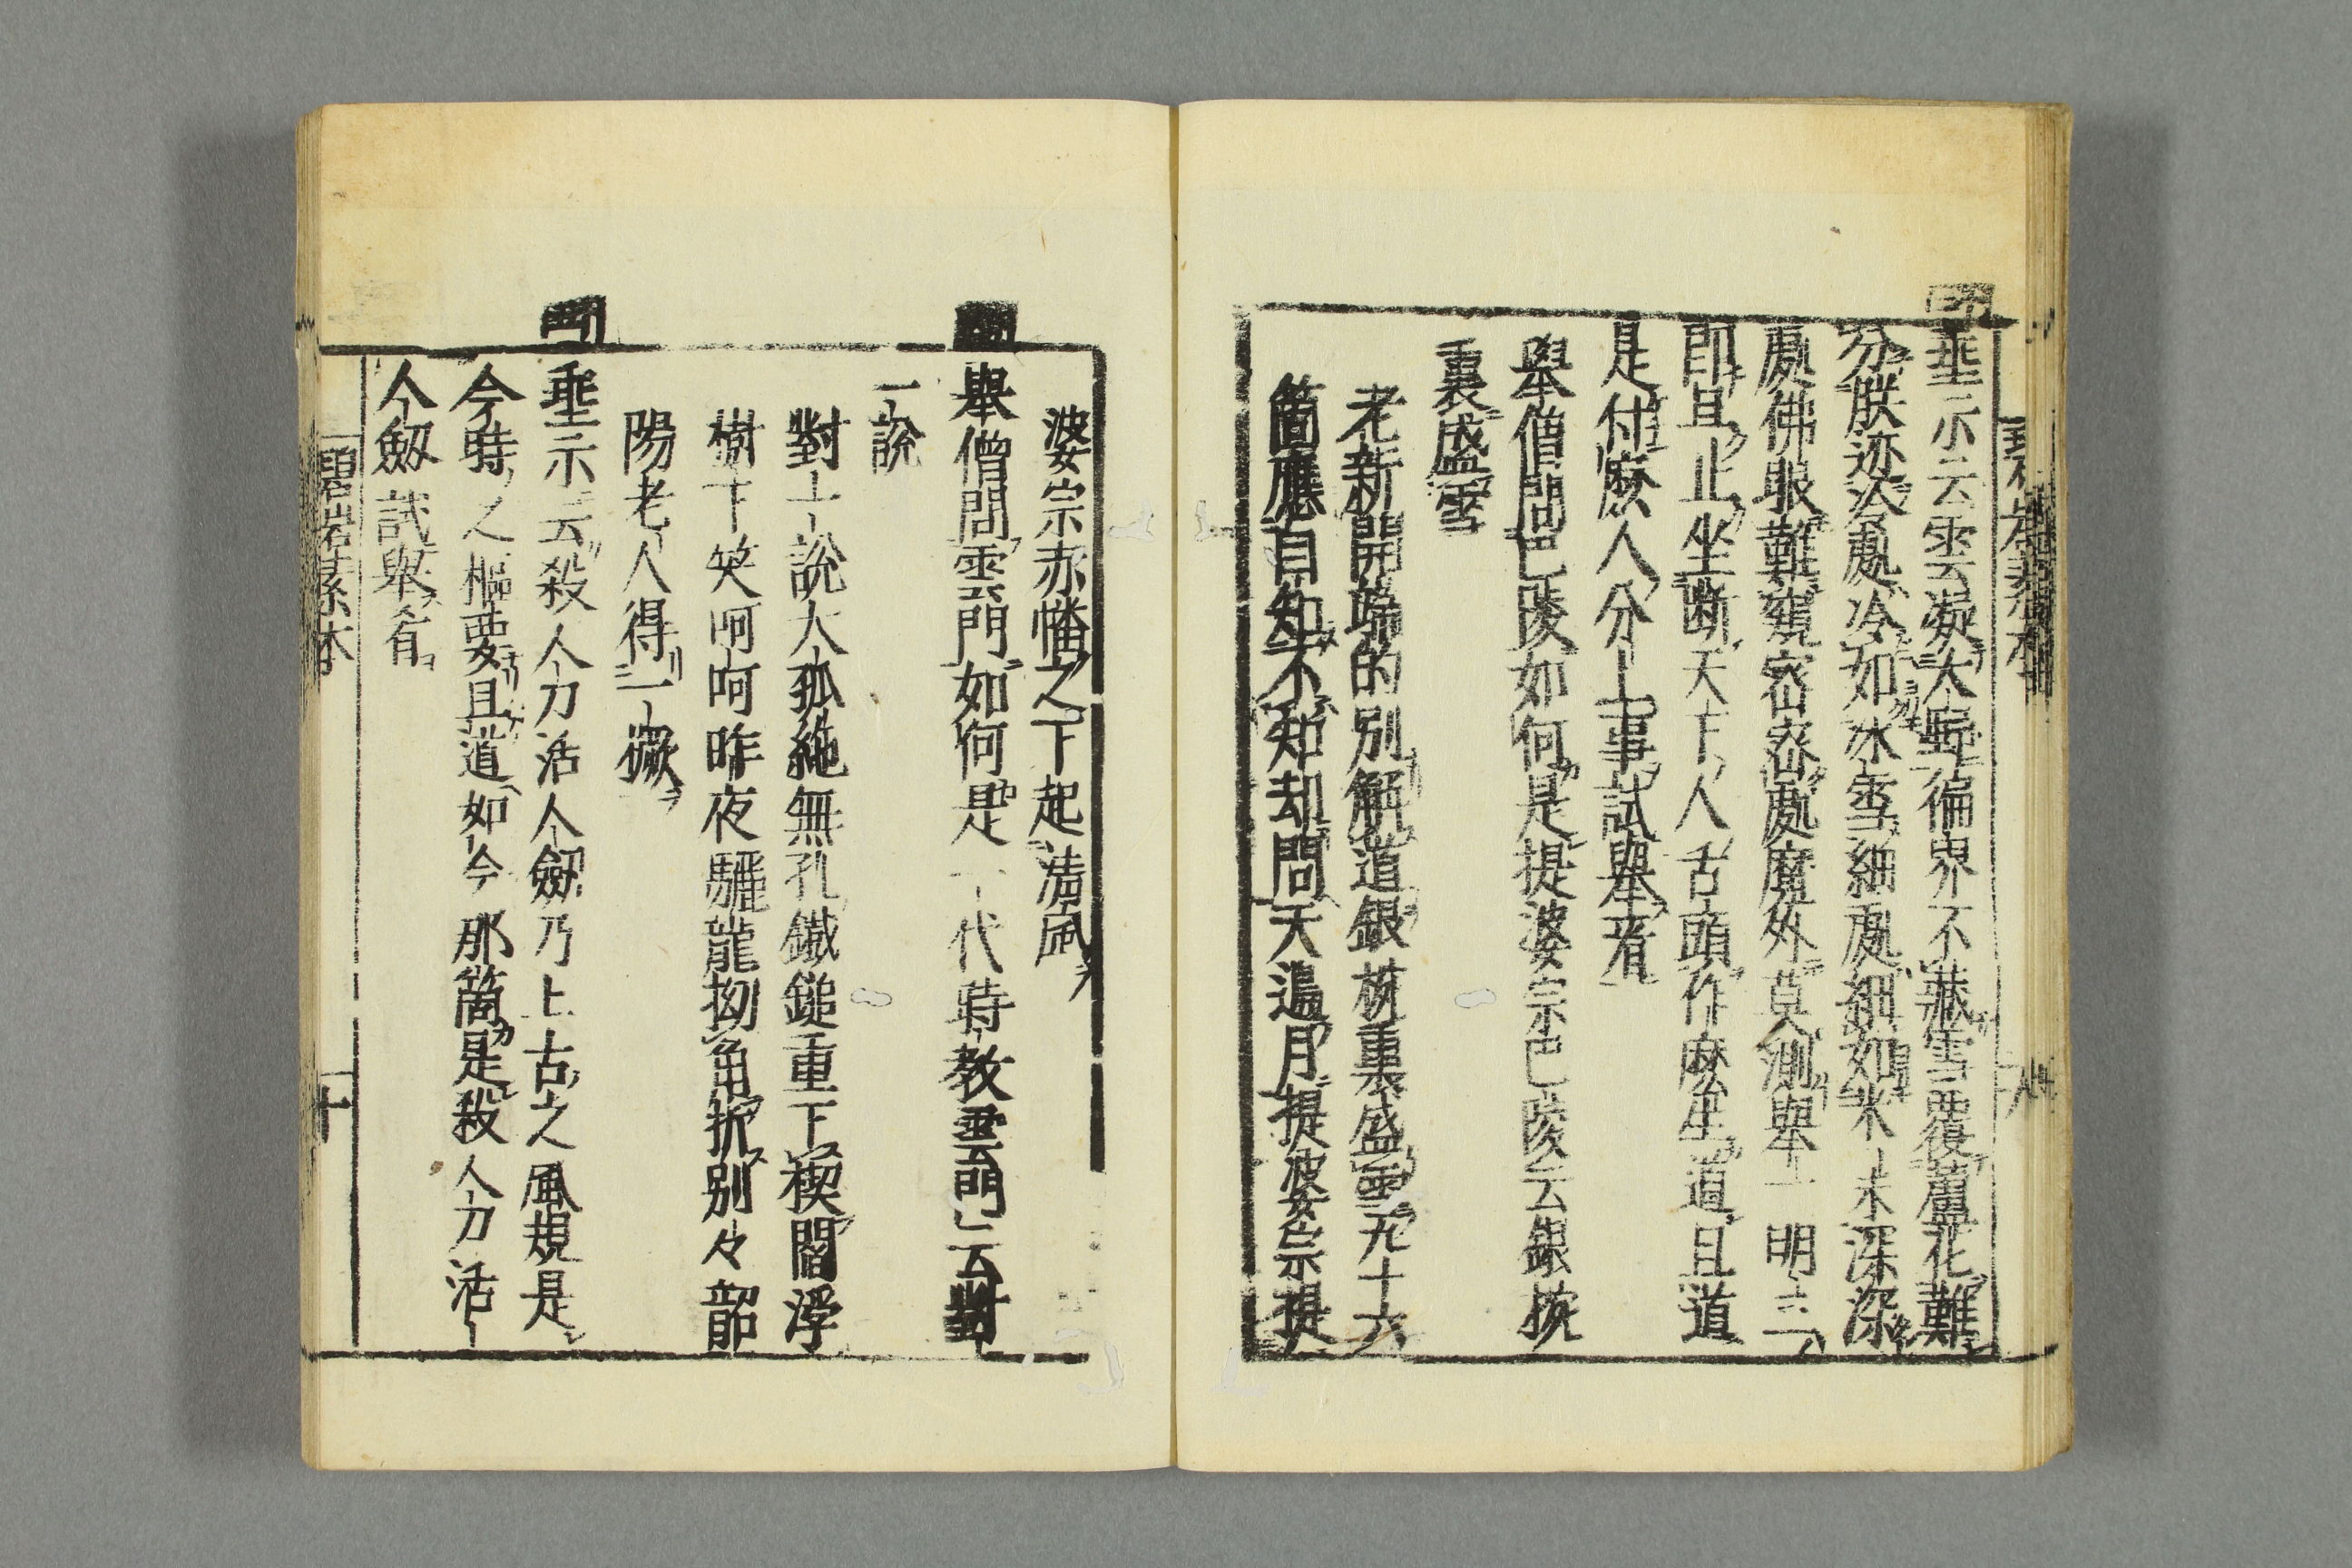 垂示云雲凝大野徧界不藏雪覆蘆花難
分朕迹冷處冷如冰雪細處細如米末深深
處佛眼難窺密密處魔外莫測擧一明三
即且止坐断天下人舌頭作麼生道且道
是什麼人分上事試擧看
擧僧問巴陵如何是提婆宗巴陵云銀椀
裏盛雪
老新開端的別解道銀椀裏盛雪九十六
箇應自知不知却問天邊月提婆宗提
婆宗赤幡之下起清風
擧僧問雲門如何是一代時教雲門云對
一說
對一說大孤絶無孔鐵鎚重下楔閻浮
樹下笑呵呵昨夜驪龍拗角折別々韶
陽老人得一橛
垂示云殺人刀活人劔乃上古之風規是
今時之樞要且道如今那箇是殺人刀活
人劔試擧看
碧岩集本
十